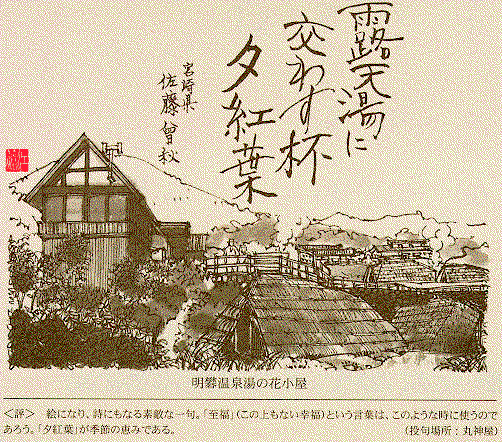 露天湯に
交わす杯
夕紅葉
宮崎県
佐藤曾秋
明礬温泉湯の花小屋
＜評＞　絵になり、詩にもなる素敵な一句。「至福」(この上もない幸福)という言葉は、このような時に使うので
あろう。「夕紅葉」が季節の恵みである。　(投句場所：丸神屋)